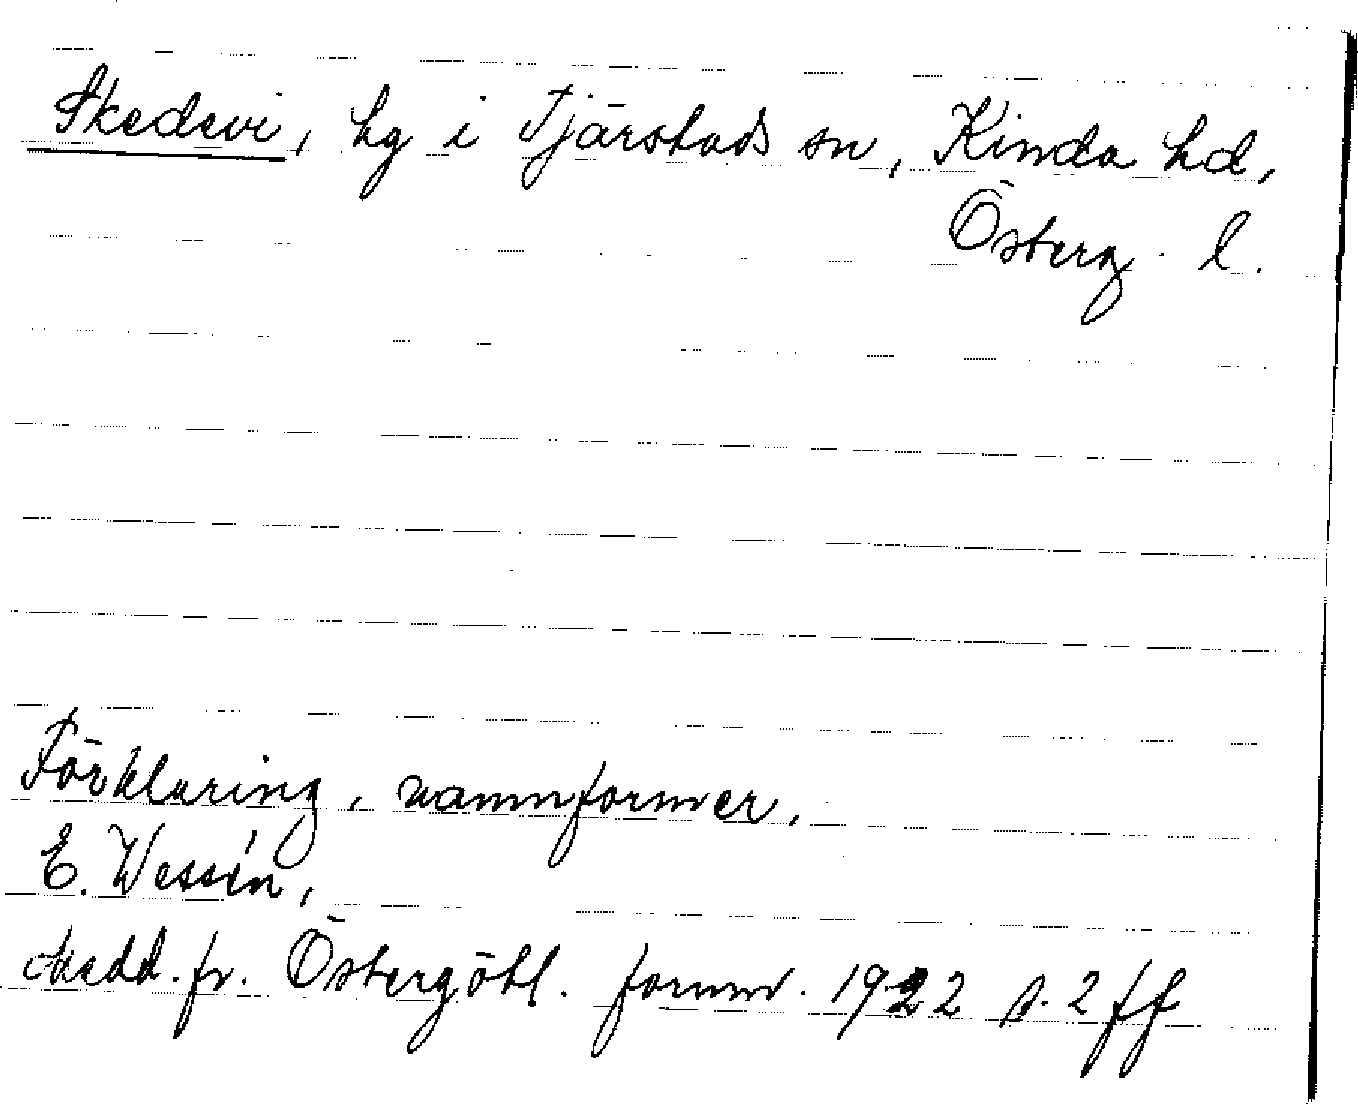 Skedevi, hg i Tjärstads sn, Kinda hd,
Österg. l.
Förklaring, namnformer.
E. Wessén,
Medd. fr. Östergötl. fornm. 1922 s. 2 ff